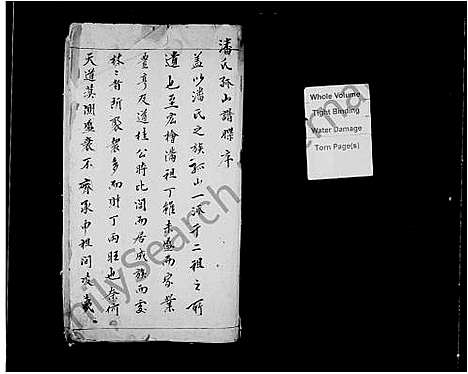 潘氏孤山譜牒序
蓋以潘氏之族孤山一派廾二祖之所
遺也至宏檜潘祖丁雖未盛而家業
豐亨及道桂公將比閭而居成族而處
林二者所聚眾多而財丁兩旺也奈何
天道莫測盛衰不齊承申祖同支
Whole Volume
Tight Binding
Water Damage
Torn Page(s)
FamilySearch